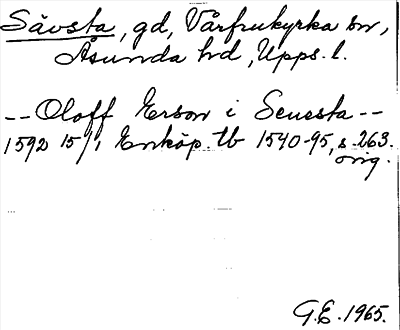 Sävsta, gd, Vårfrukyrka sn,
Åsunda hd, Upps. l.
-- Oloff Erson i Seuesta --
1592 15/1, Enköp. tb 1540-95, s. 263.
orig.
G.E. 1965.